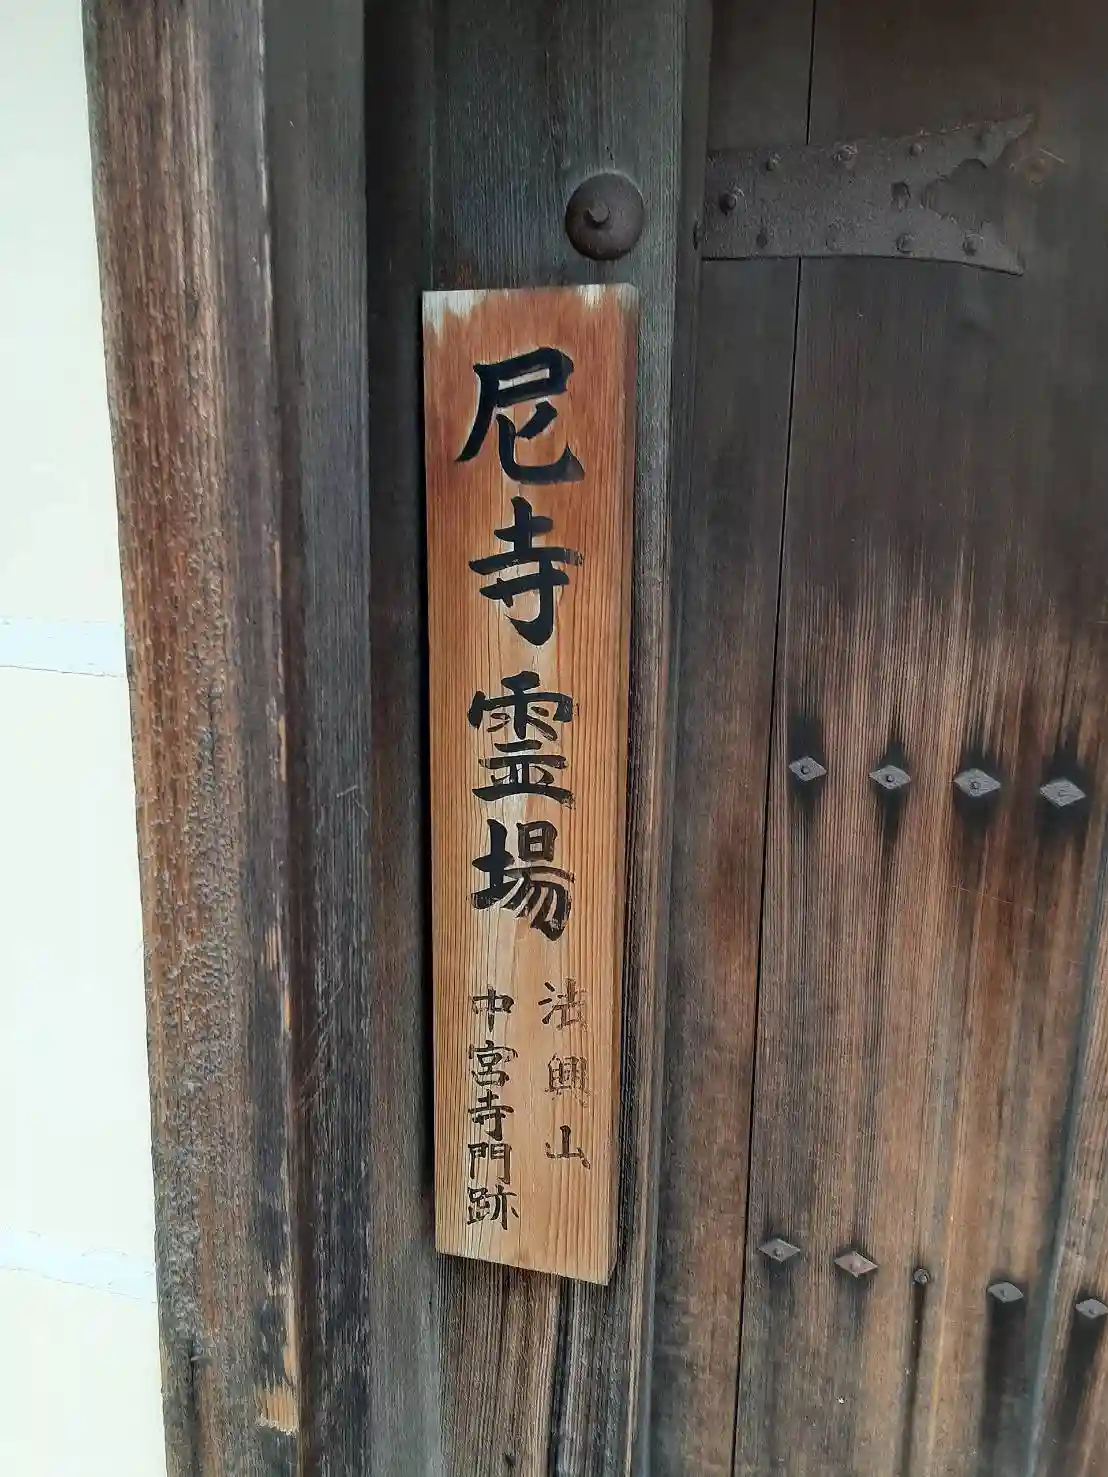 尼寺霊場
法興山
中宮寺門跡